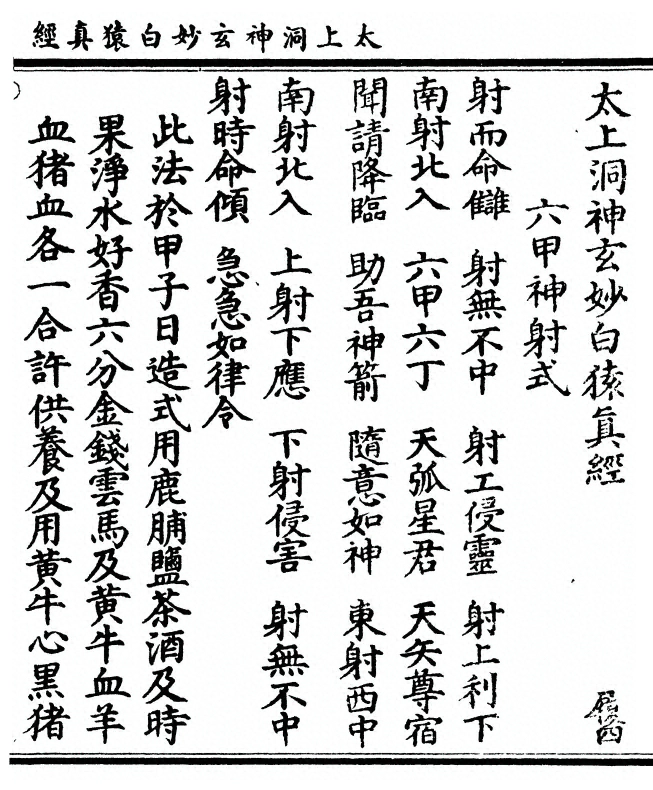 太上洞神玄妙白猿真經
太上洞神玄妙白猿真經
六甲神射式
射而命讎　射無不中　射工侵靈　射上利下
南射北入　六甲六丁　天弧星君　天矢尊宿
聞請降臨　助吾神箭　隨意如神　東射西中
南射北入　上射下應　下射侵害　射無不中
射時命傾　急急如律令
此法於甲子日造式用鹿脯鹽茶酒及時
果淨水好香六分金錢雲馬及黄牛血羊
血猪血各一合許供養及用黄牛心黑猪